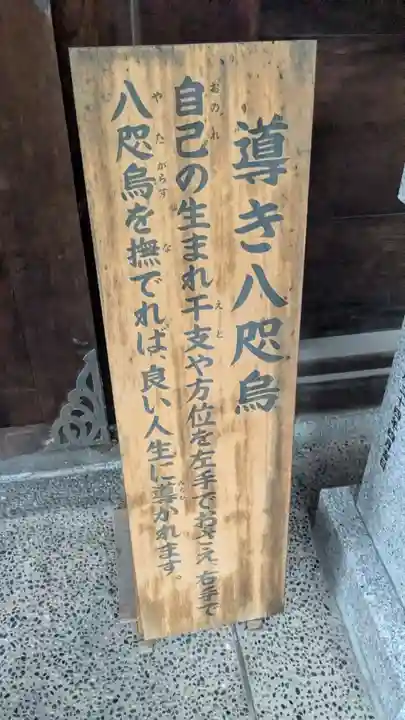 導き八咫烏
自己の生まれ干支や方位を左手でおさえ、右手で
八咫烏を撫でれば、良い人生に導かれます。